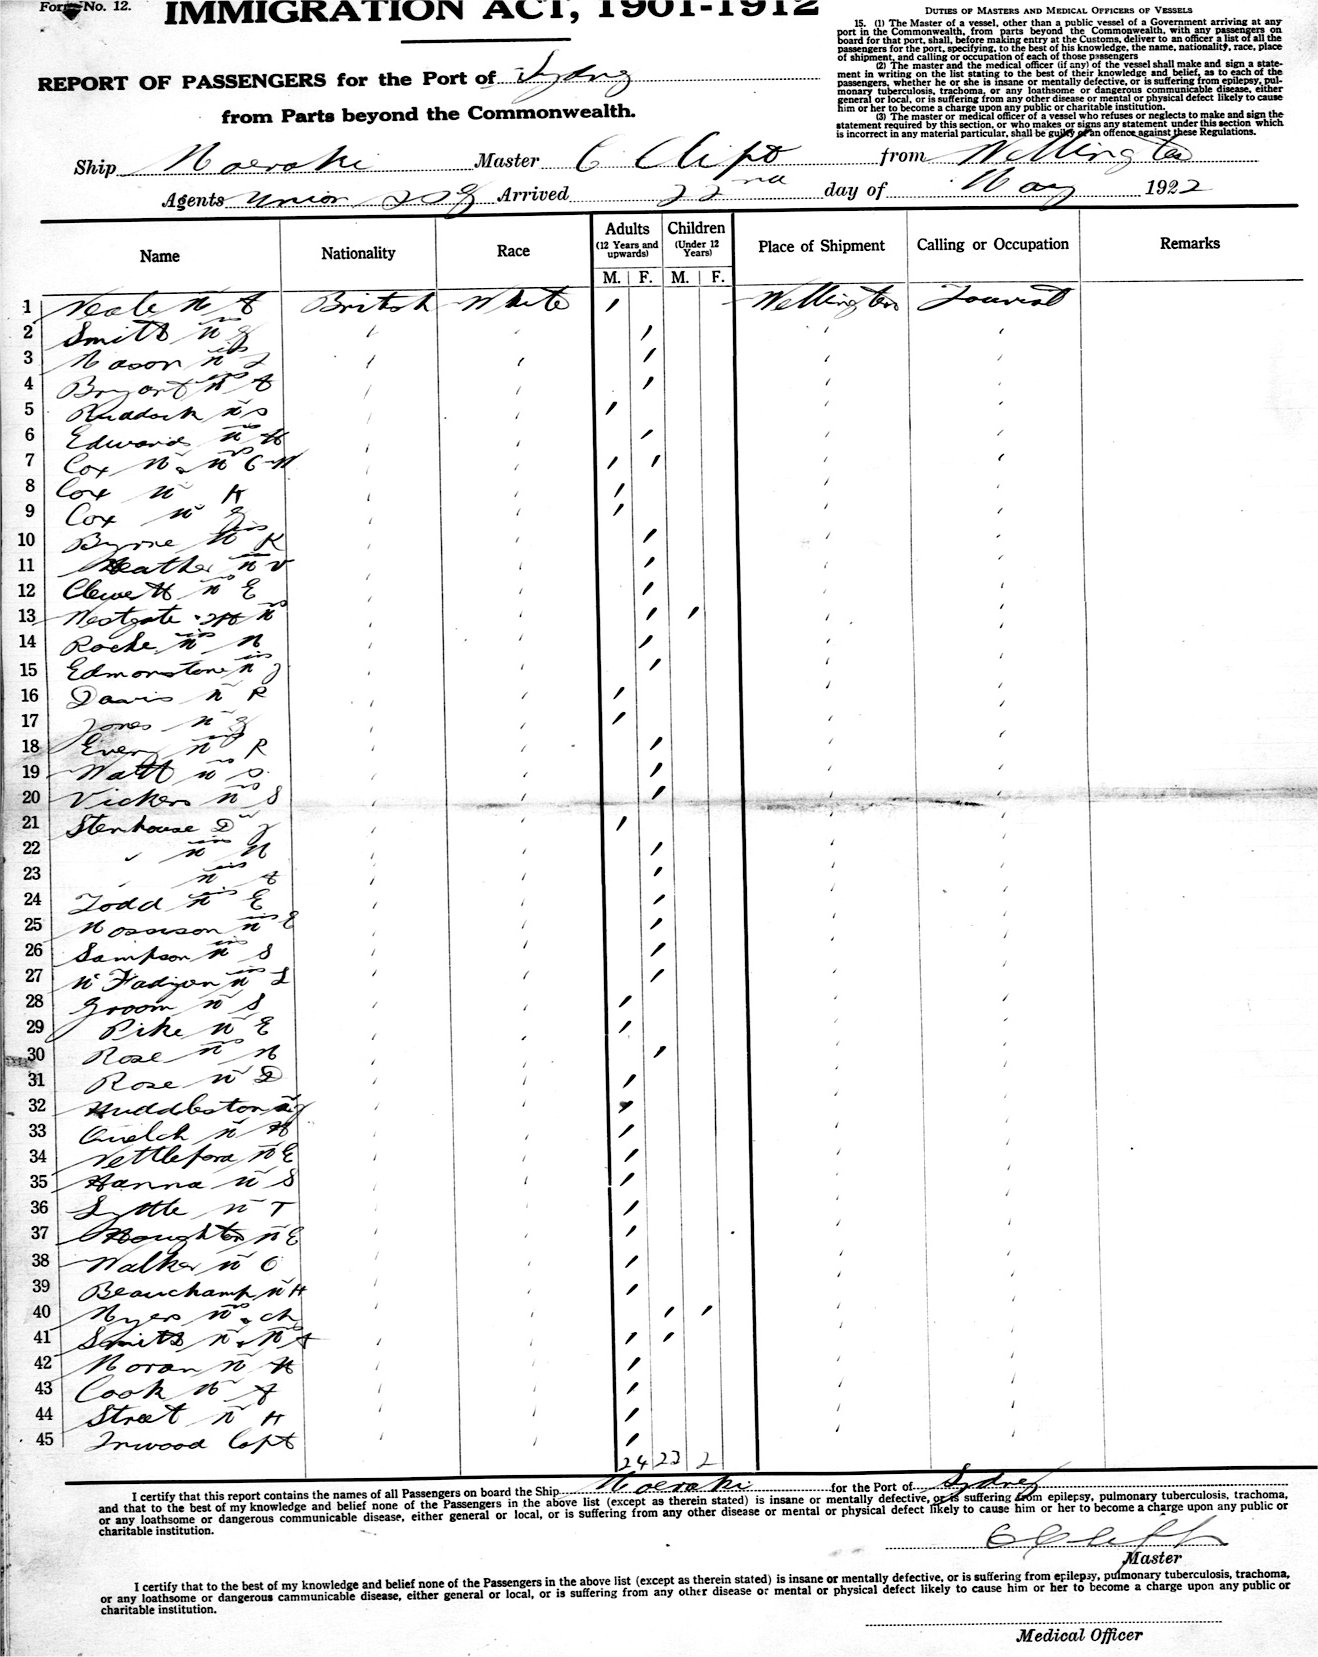 Form No. 12.
IMMIGRATION ACT, 1901-1912
REPORT OF PASSENGERS for the Port of Sydney
from Parts beyond the Commonwealth.
DUTIES OF MASTERS AND MEDICAL OFFICERS OF VESSELS
15. (1) The Master of a vessel, other than a public vessel of a Government arriving at any
port in the Commonwealth, from parts beyond the Commonwealth, with any passengers on
board for that port, shall, before making entry at the Customs, deliver to an officer a list of all the
passengers for the port, specifying, to the best of his knowledge, the name, nationality, race, place
of shipment, and calling or occupation of each of those passengers
(2) The master and the medical officer (if any) of the vessel shall make and sign a state-
ment in writing on the list stating to the best of their knowledge and belief, as to each of the
passengers, whether he or she is insane or mentally defective, or is suffering from epilepsy, pul-
monary tuberculosis, trachoma, or any loathsome or dangerous communicable disease, either
general or local, or is suffering from any other disease or mental or physical defect likely to cause
him or her to become a charge upon any public or charitable institution.
(3) The master or medical officer of a vessel who refuses or neglects to make and sign the
statement required by this section, or who makes or signs any statement under this section which
is incorrect in any material particular, shall be guilty of an offence against these Regulations.
Ship Moeraki Master C from Wellington
Agents Union Arrived 22nd day of May 1922
Name Nationality Race Adults (12 Years and upwards) M. F. Children (Under 12 Years) M. F. Place of Shipment Calling or Occupation Remarks
1 Neale Mr A British White Wellington Tourist
2 Smith
3 Mason Miss
4 Bryant
5 Ruddock Mr
6 Edwards Mrs H
7 Cox Mr & Mrs C W
8 Cox Mr H
9 Cox Mr
10 Byrne Miss K
11 Heather V
12 Clewett Mrs E
13 Westgate
14 Roche Miss M
15 Edmonstone Miss J
16 Davis Mr R
17 Jones Mr G
18 Every Miss R
19 Watt Mrs
20 Vickers Mrs S
21 Stenhouse Dr J
22 " Miss M
23 " Miss A
24 Todd Miss E
25 Morrison Miss E
26 Sampson Miss S
27 Miss L
28 Groom Mr S
29 Pike Mr E
30 Rose Mrs M
31 Rose Mr D
32 Huddleston
33 Quelch Mr H
34 Nettlefold Mr E
35 Hanna Mr S
36 Lyttle Mr T
37 Houghton Mr E
38 Walker Mr C
39 Beauchamp Mr H
40 Myers Mrs & ch
41 Smith Mr & Mrs A
42 Moran Mr H
43 Cook Mr A
44 Street Mr H
45 Inwood Capt
24 23 2
I certify that this report contains the names of all Passengers on board the Ship Moeraki for the Port of Sydney
and that to the best of my knowledge and belief none of the Passengers in the above list (except as therein stated) is insane or mentally defective, or is suffering from epilepsy, pulmonary tuberculosis, trachoma,
or any loathsome or dangerous communicable disease, either general or local, or is suffering from any other disease or mental or physical defect likely to cause him or her to become a charge upon any public or
charitable institution.
Master
I certify that to the best of my knowledge and belief none of the Passengers in the above list (except as therein stated) is insane or mentally defective, or is suffering from epilepsy, pulmonary tuberculosis, trachoma,
or any loathsome or dangerous cammunicable disease, either general or local, or is suffering from any other disease or mental or physical defect likely to cause him or her to become a charge upon any public or
charitable institution.
Medical Officer